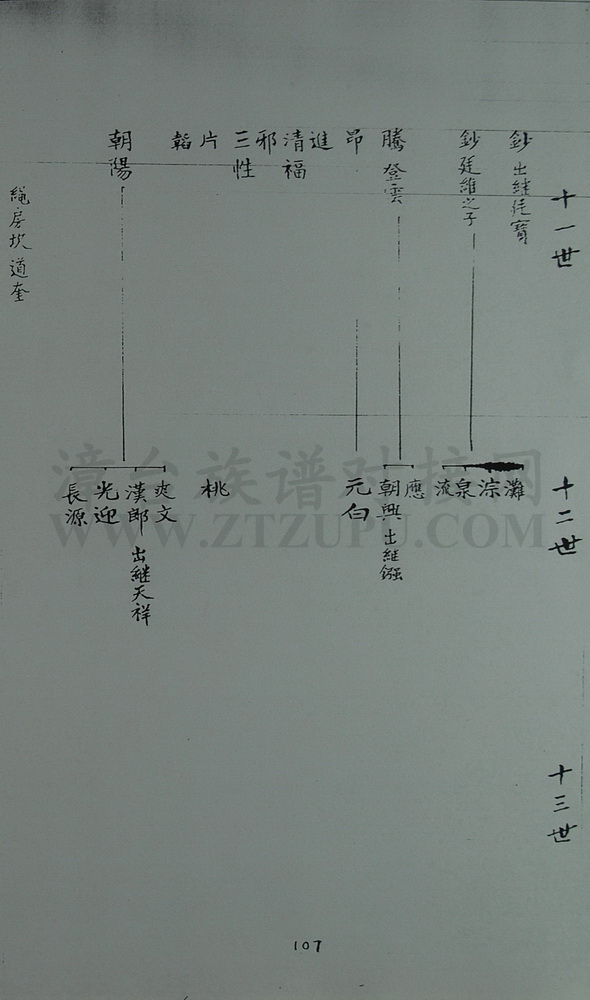 十一世
鈔 出継廷寶
鈔 廷維之子
騰 登雲
昂
進
清福
邪
三性
片
韜
朝陽
繩房坎 道奎
十二世
灘
淙
泉
流
應
朝興 出継鏹
元白
桃
爽文
漢郎 出継天祥
光迎
長源
十三世
107
漳台族谱对接网
WWW.ZTZUPU.COM